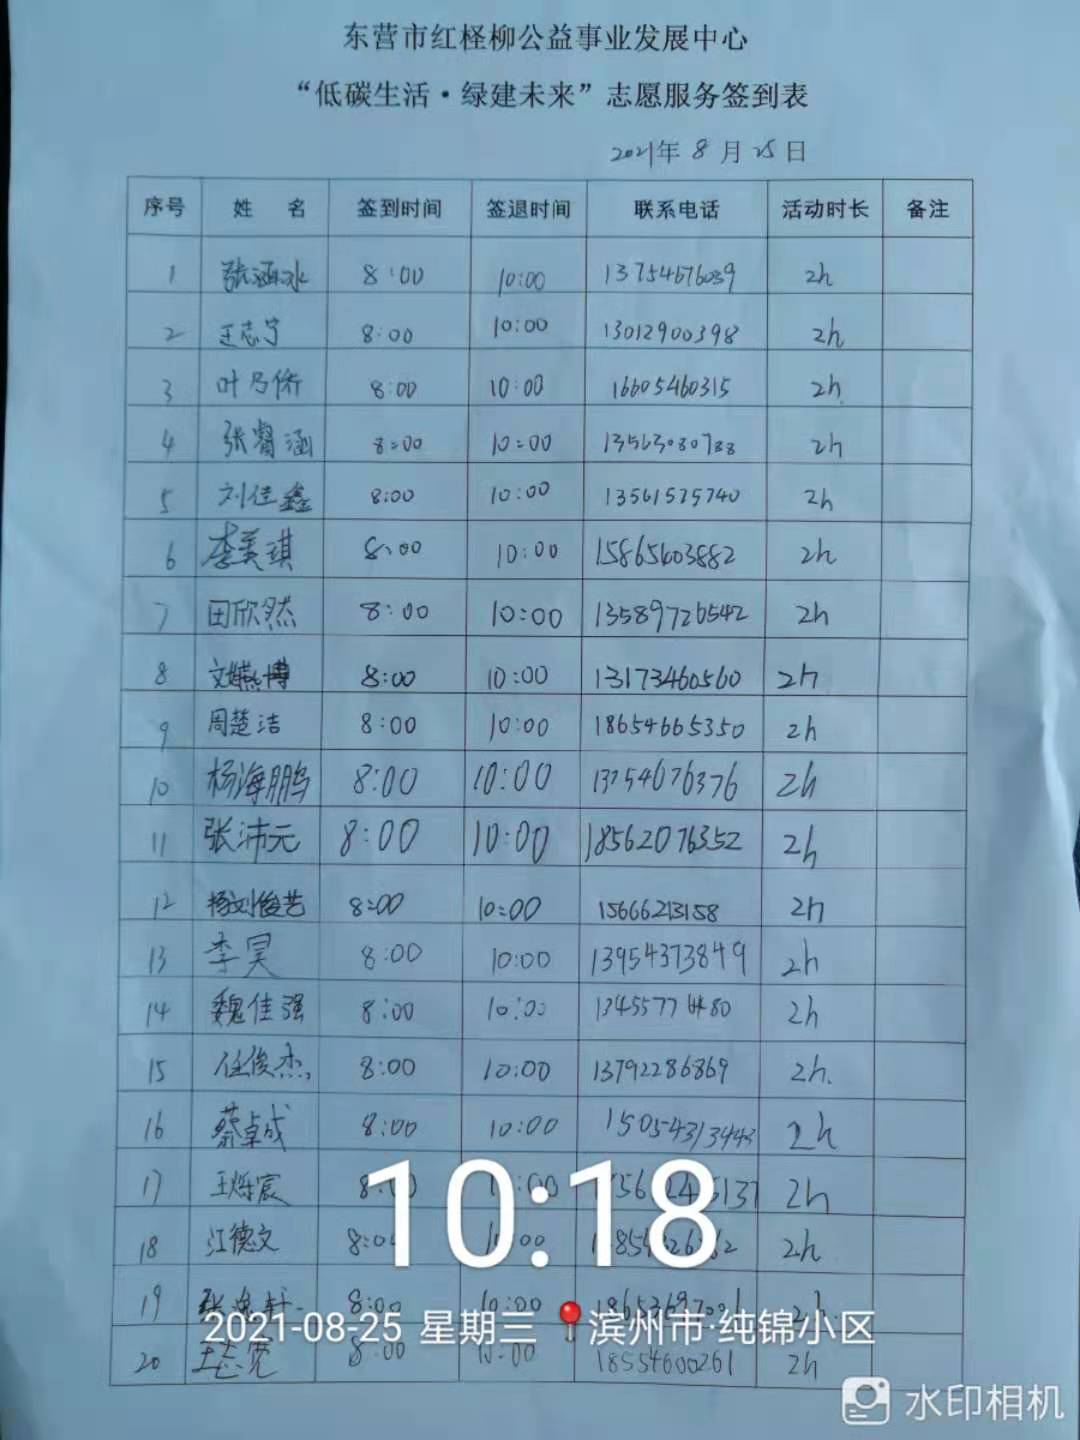 东营市红柽柳公益事业发展中心
“低碳生活·绿建未来”志愿服务签到表
2021年 8 月 25 日
序号 姓 名 签到时间 签退时间 联系电话 活动时长 备注
1 张涵冰 8:00 10:00 13754676039 2h
2 王志宁 8:00 10:00 13012900398 2h
3 叶乃侨 8:00 10:00 16605460315 2h
4 张睿涵 8:00 10:00 2h
5 刘佳鑫 8:00 10:00 13561575740 2h
6 李美琪 8:00 10:00 15865403882 2h
7 田欣然 8:00 10:00 13589726542 2h
8 8:00 10:00 13173460560 2h
9 周楚洁 8:00 10:00 18654665350 2h
10 杨海鹏 8:00 10:00 13754676376 2h
11 张沛元 8:00 10:00 18562076352 2h
12 杨刘俊艺 8:00 10:00 15666213158 2h
13 李昊 8:00 10:00 13954373849 2h
14 魏佳强 8:00 10:00 2h
15 任俊杰 8:00 10:00 13792286869 2h.
16 蔡卓成 8:00 10:00 15054313443 2h
17 王烁宸 2h
18 江德文 2h
19 8:00 10:00
20 王志宽 8:00 10:00 18554600261 2h
10:18
2021-08-25 星期三 滨州市·纯锦小区
水印相机